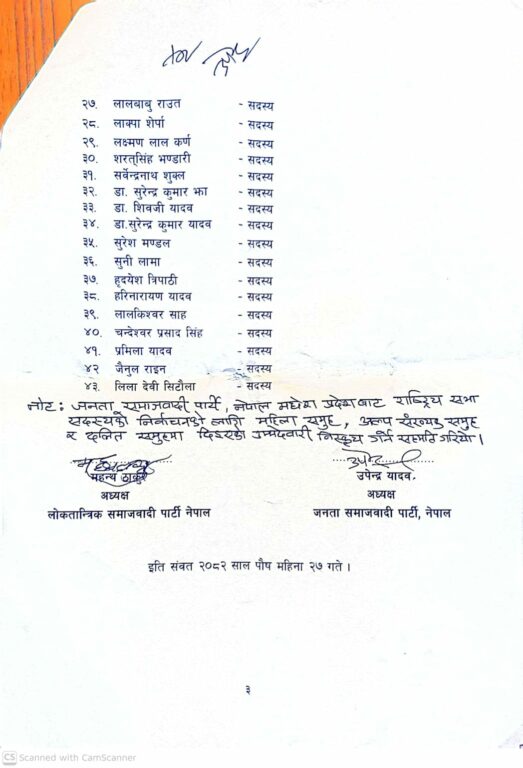 २७. लालबाबु राउत - सदस्य
२८. लाक्पा शेर्पा - सदस्य
२९. लक्ष्मण लाल कर्ण - सदस्य
३०. शरत्‌सिंह भण्डारी - सदस्य
३१. सर्वेन्द्रनाथ शुक्ल - सदस्य
३२. डा. सुरेन्द्र कुमार झा - सदस्य
३३. डा. शिवजी यादव - सदस्य
३४. डा.सुरेन्द्र कुमार यादव - सदस्य
३५. सुरेश मण्डल - सदस्य
३६. सुनी लामा - सदस्य
३७. हृदयेश त्रिपाठी - सदस्य
३८. हरिनारायण यादव - सदस्य
३९. लालकिश्वर साह - सदस्य
४०. चन्देश्वर प्रसाद सिंह - सदस्य
४१. प्रमिला यादव - सदस्य
४२ जैनुल राइन - सदस्य
४३. लिला देवी सिटौला - सदस्य
नोट: जनता समाजवादी पार्टी, नेपाल मधेश प्रदेशबाट राष्ट्रिय सभा
सदस्यको निर्वाचनको लागि महिला समूह, अल्प संख्यक समूह
र दलित समूहमा दिइएको उम्मेदवारी निस्कृय गर्न सहमति गरियो।
महन्थ ठाकुर
उपेन्द्र यादव
अध्यक्ष
अध्यक्ष
लोकतान्त्रिक समाजवादी पार्टी नेपाल
जनता समाजवादी पार्टी, नेपाल
इति संवत २०८२ साल पौष महिना २७ गते ।
३
CS Scanned with CamScanner